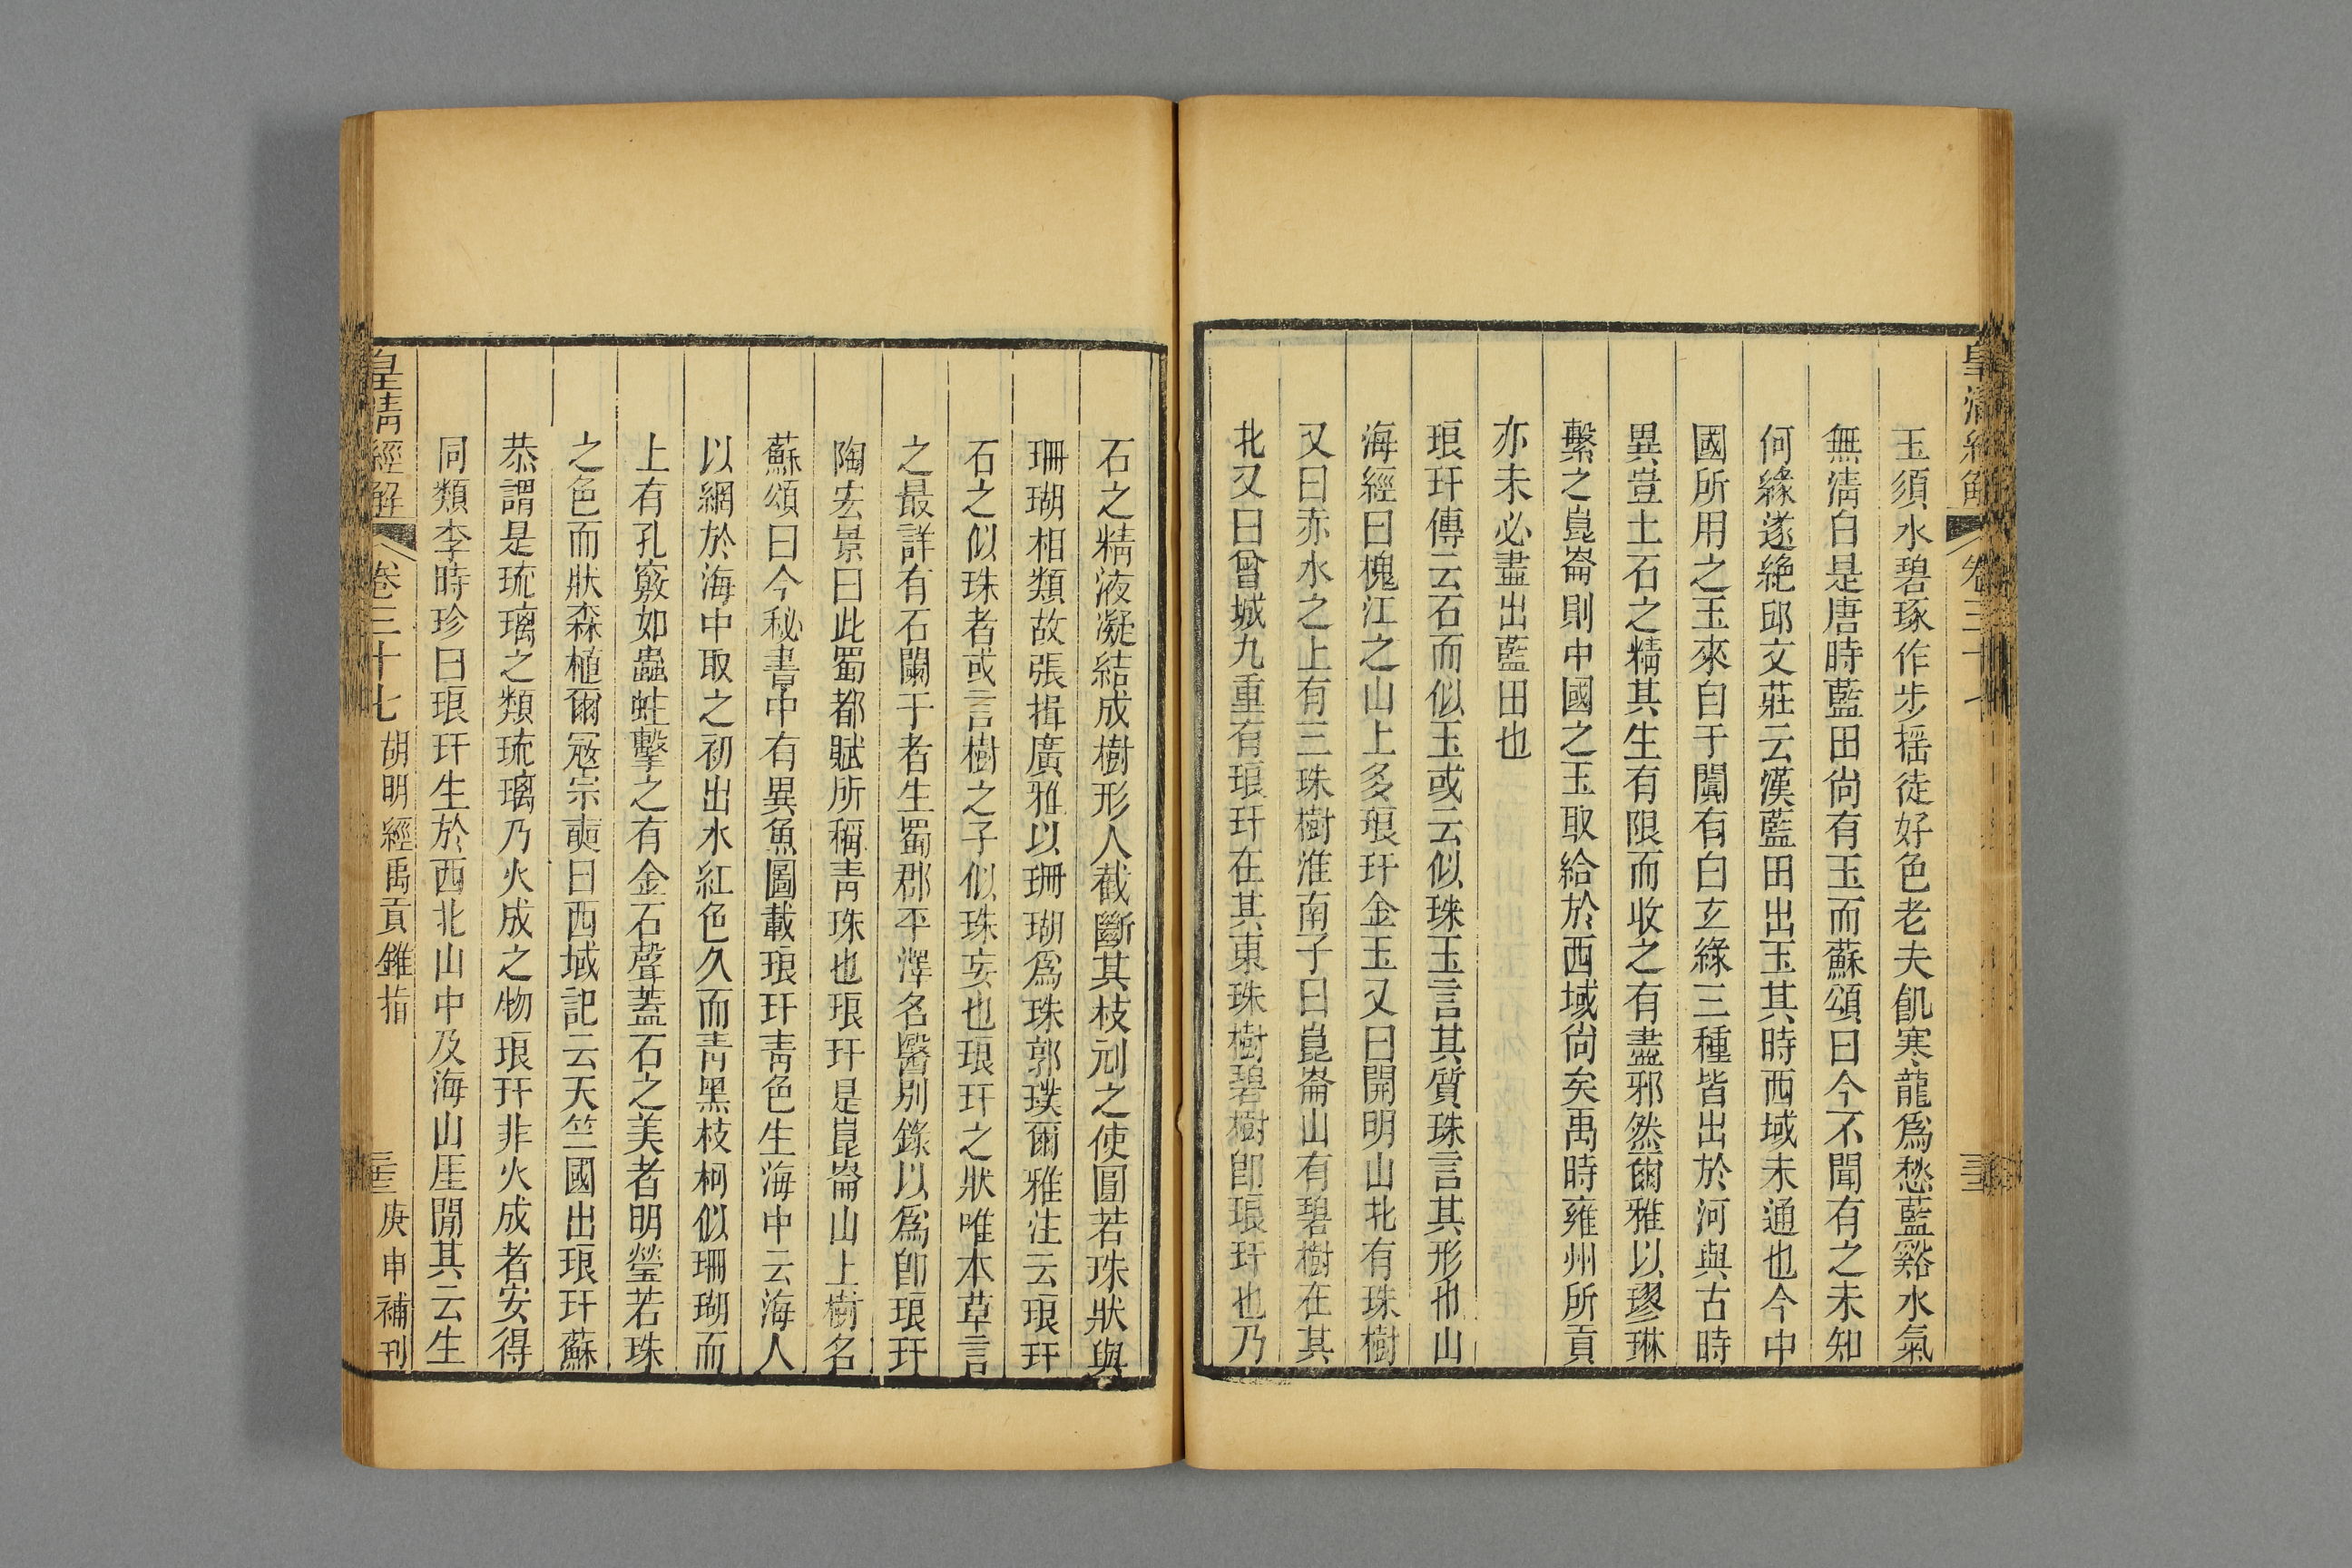 皇清經解 卷三十七
玉須水碧琢作步搖徒好色老夫飢寒龍爲愁藍谿水氣
無淸白是唐時藍田尙有玉而蘇頌曰今不聞有之未知
何緣遂絶邱文莊云漢藍田出玉其時西域未通也今中
國所用之玉來自于闐有白玄綠三種皆出於河與古時
異豈土石之精其生有限而收之有盡邪然爾雅以璆琳
繫之崑崙則中國之玉取給於西域尙矣禹時雍州所貢
亦未必盡出藍田也
琅玕傳云石而似玉或云似珠玉言其質珠言其形也山
海經曰槐江之山上多琅玕金玉又曰開明山北有珠樹
又曰赤水之上有三珠樹淮南子曰崑崙山有碧樹在其
北又曰曾城九重有琅玕在其東珠樹碧樹卽琅玕也乃
石之精液凝結成樹形人截斷其枝刓之使圓若珠狀與
珊瑚相類故張揖廣雅以珊瑚爲珠郭璞爾雅注云琅玕
石之似珠者或言樹之子似珠妄也琅玕之狀唯本草言
之最詳有石闌干者生蜀郡平澤名醫別錄以爲卽琅玕
陶宏景曰此蜀都賦所稱靑珠也琅玕是崑崙山上樹名
蘇頌曰今秘書中有異魚圖載琅玕靑色生海中云海人
以網於海中取之初出水紅色久而靑黑枝柯似珊瑚而
上有孔竅如蟲蛀擊之有金石聲蓋石之美者明瑩若珠
之色而狀森植爾寇宗奭曰西域記云天竺國出琅玕蘇
恭謂是琉璃之類琉璃乃火成之物琅玕非火成者安得
同類李時珍曰琅玕生於西北山中及海山厓閒其云生
皇淸經解 卷三十七 胡明經禹貢錐指 庚申補刊